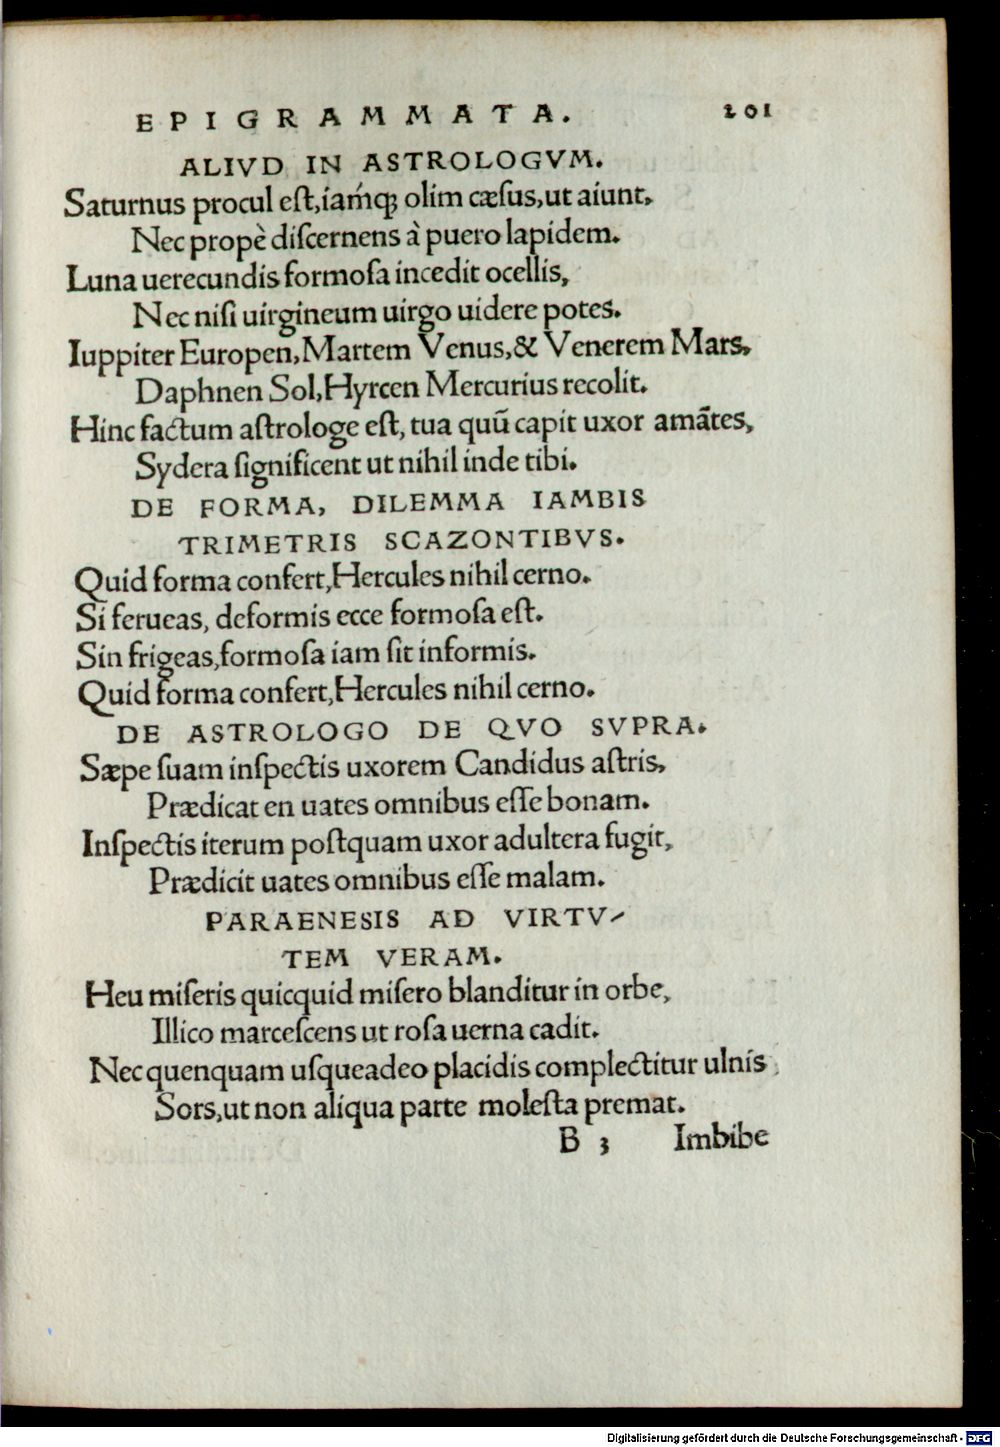 EPIGRAMMATA. 201
ALIVD IN ASTROLOGVM.
Saturnus procul eſt,iamq́ꝫ olim cæsus,ut aiunt,
Nec propè diſcernens à puero lapidem.
Luna uerecundis formoſa incedit ocellis,
Nec niſi uirgineum uirgo uidere potes.
Iuppiter Europen,Martem Venus,& Venerem Mars,
Daphnen Sol,Hyrcen Mercurius recolit.
Hinc factum aſtrologe eſt, tua quū capit uxor amātes,
Sydera ſignificent ut nihil inde tibi.
DE FORMA, DILEMMA IAMBIS
TRIMETRIS SCAZONTIBVS.
Quid forma confert,Hercules nihil cerno.
Si ferueas, deformis ecce formoſa eſt.
Sin frigeas,formoſa iam ſit informis.
Quid forma confert,Hercules nihil cerno.
DE ASTROLOGO DE QVO SVPRA.
Sæpe ſuam inſpectis uxorem Candidus aſtris,
Prædicat en uates omnibus eſſe bonam.
Inſpectis iterum poſtquam uxor adultera fugit,
Prædicit uates omnibus eſſe malam.
PARAENESIS AD VIRTV-
TEM VERAM.
Heu miſeris quicquid miſero blanditur in orbe,
Illico marceſcens ut roſa uerna cadit.
Nec quenquam uſqueadeo placidis complectitur ulnis
Sors,ut non aliqua parte moleſta premat.
B 3 Imbibe
Digitalisierung gefördert durch die Deutsche Forschungsgemeinschaft - DFG